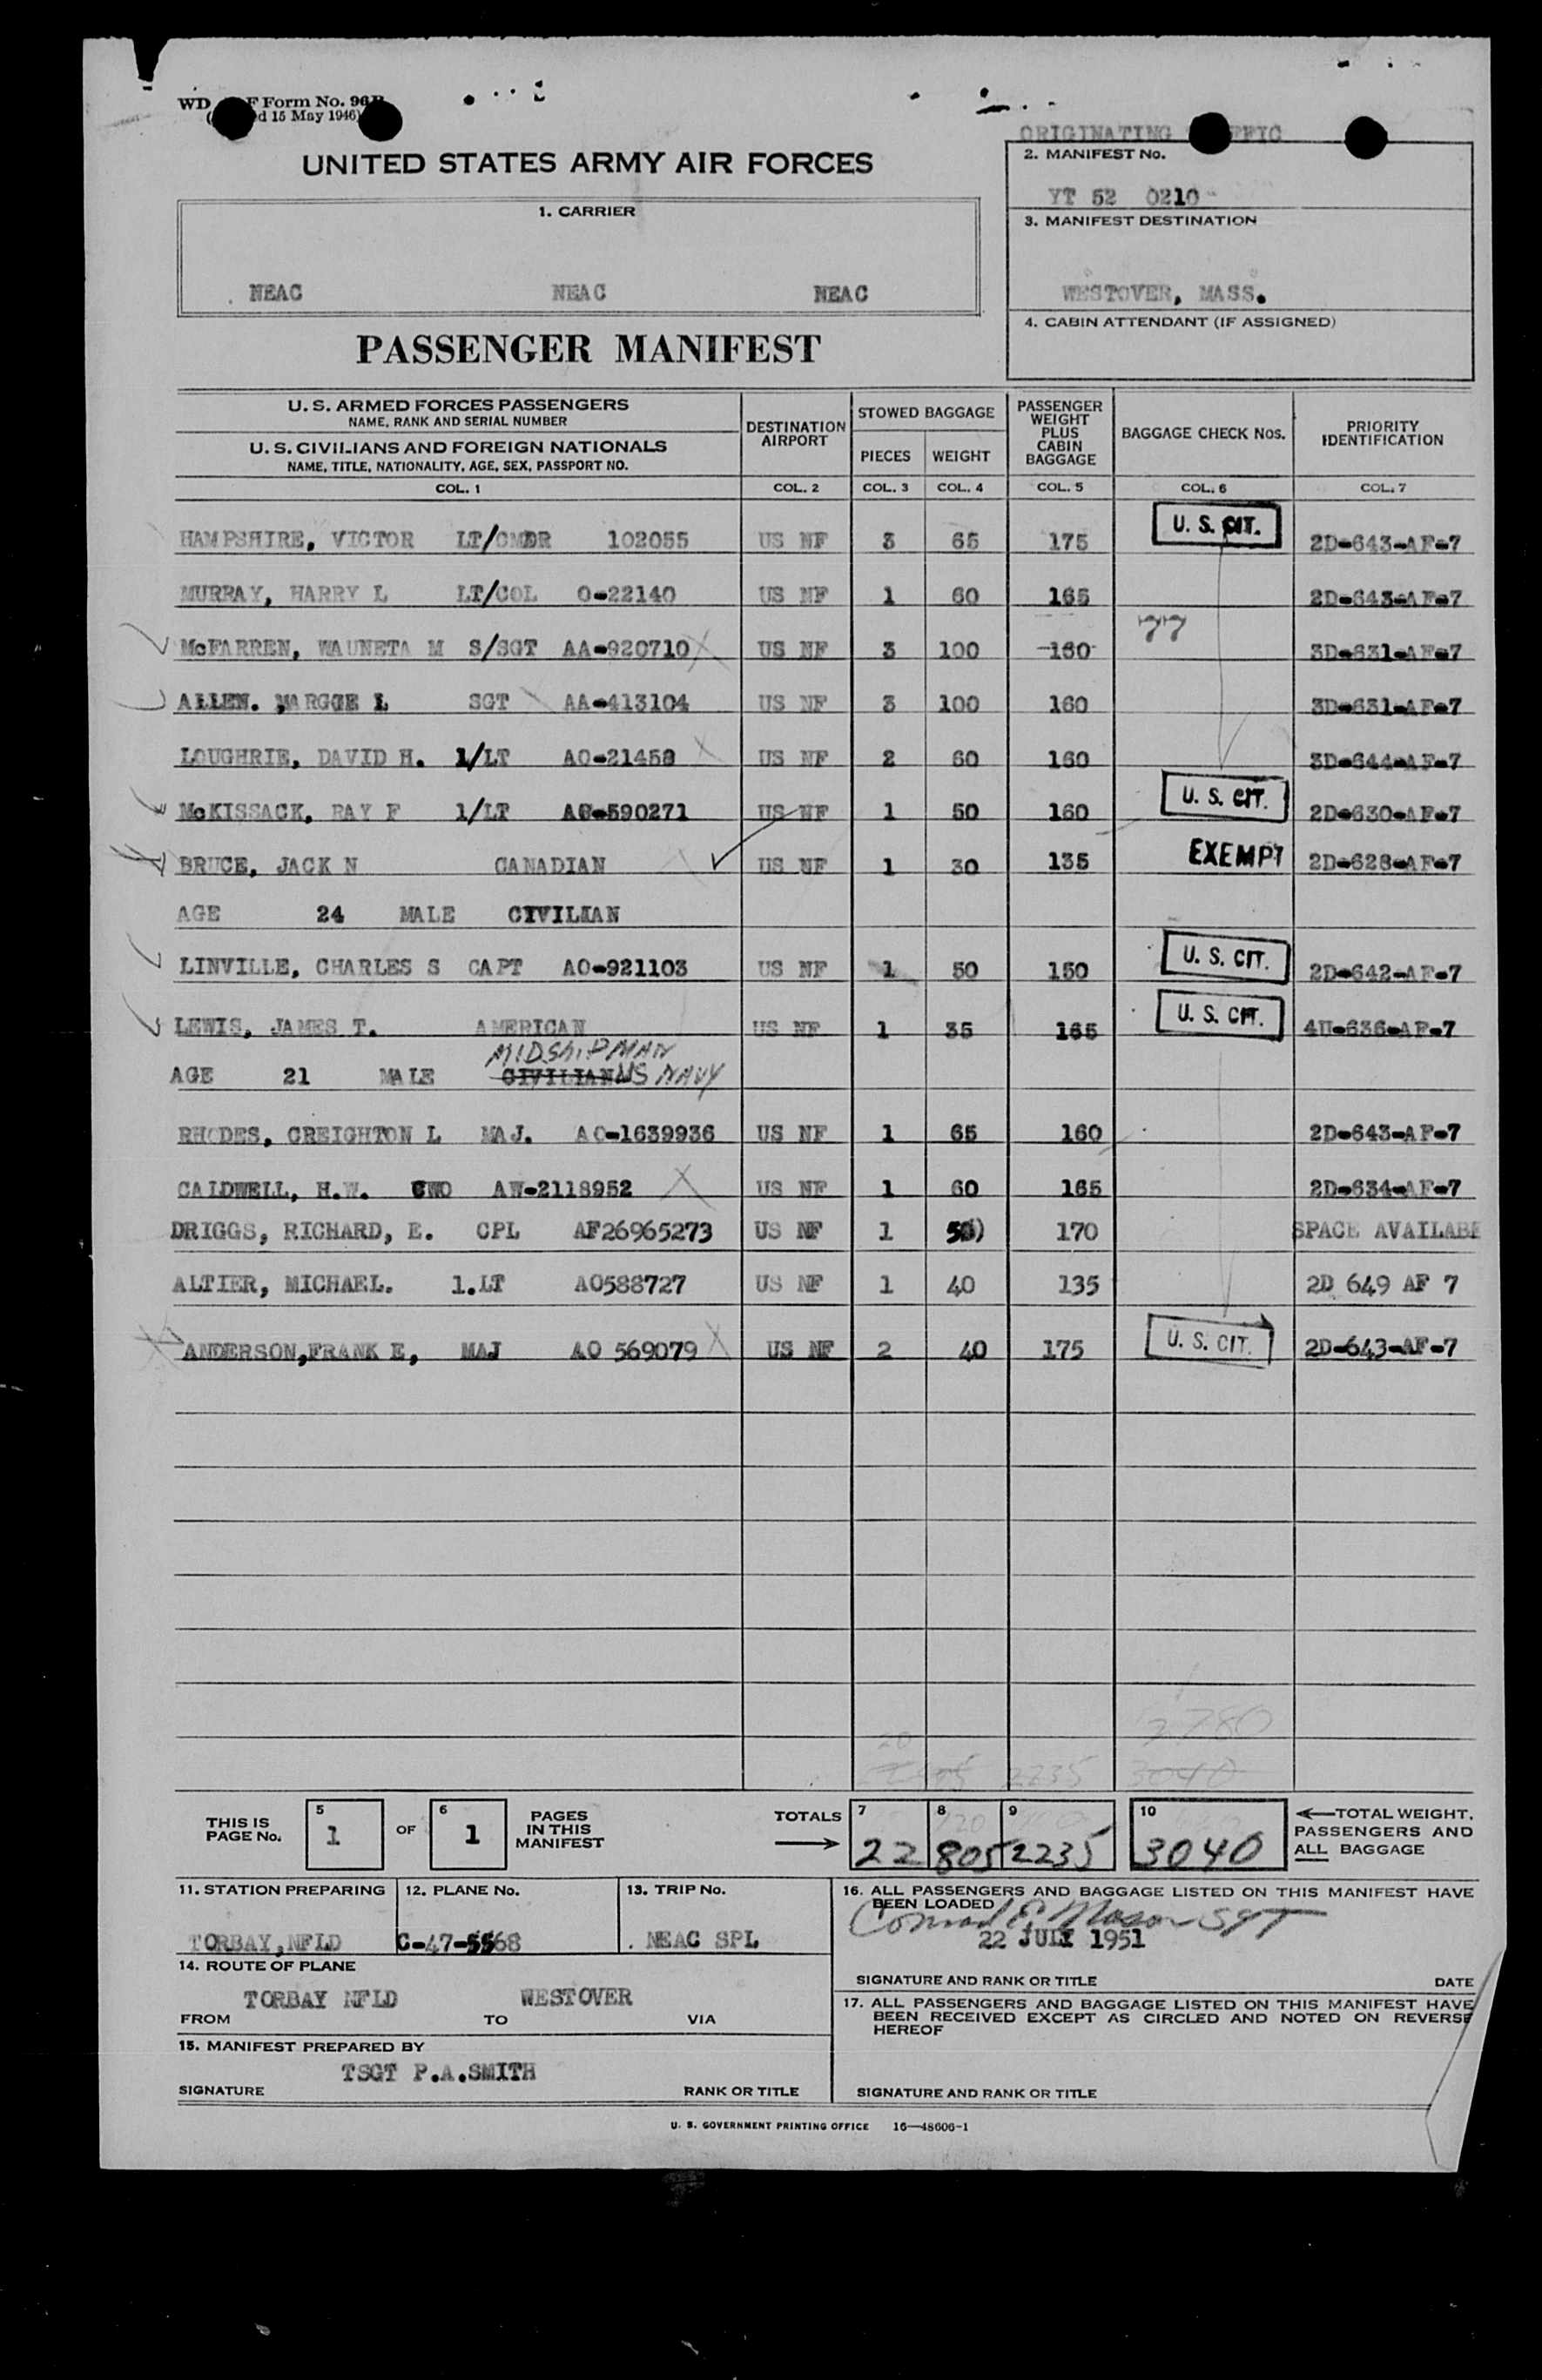 WD F Form No. 96
d 15 May 1946)
UNITED STATES ARMY AIR FORCES
1. CARRIER
NEAC NEAC NEAC
PASSENGER MANIFEST
ORIGINATING
2. MANIFEST No.
YT 52 0210
3. MANIFEST DESTINATION
WESTOVER, MASS.
4. CABIN ATTENDANT (IF ASSIGNED)
U. S. ARMED FORCES PASSENGERS
NAME, RANK AND SERIAL NUMBER
U. S. CIVILIANS AND FOREIGN NATIONALS
NAME, TITLE, NATIONALITY, AGE, SEX, PASSPORT NO.
DESTINATION AIRPORT
STOWED BAGGAGE
PIECES WEIGHT
PASSENGER WEIGHT PLUS CABIN BAGGAGE
BAGGAGE CHECK Nos.
PRIORITY IDENTIFICATION
COL. 1 COL. 2 COL. 3 COL. 4 COL. 5 COL. 6 COL. 7
HAMPSHIRE, VICTOR LT/CMDR 102055 US NF 3 65 175 U. S. CIT. 2D-643-AF-7
MURRAY, HARRY L LT/COL O-22140 US NF 1 60 165 2D-643-AF-7
McFARREN, WAUNETA M S/SGT AA-920710 US NF 3 100 160 77 3D-631-AF-7
ALLEN. MARGGE L SGT AA-413104 US NF 3 100 160 3D-631-AF-7
LOUGHRIE, DAVID H. 1/LT AO-21458 US NF 2 60 160 3D-644-AF-7
McKISSACK, RAY F 1/LT AO-590271 US NF 1 50 160 U. S. CIT. 2D-630-AF-7
BRUCE, JACK N CANADIAN US NF 1 30 135 EXEMPT 2D-628-AF-7
AGE 24 MALE CIVILIAN
LINVILLE, CHARLES S CAPT AO-921103 US NF 1 50 150 U. S. CIT. 2D-642-AF-7
LEWIS, JAMES T. AMERICAN US NF 1 35 165 U. S. CIT. 4U-636-AF-7
MIDSHIPMAN
AGE 21 MALE CIVILIAN US NAVY
RHODES, CREIGHTON L MAJ. AO-1639936 US NF 1 65 160 2D-643-AF-7
CALDWELL, H.W. CWO AW-2118952 US NF 1 60 165 2D-634-AF-7
DRIGGS, RICHARD, E. CPL AF26965273 US NF 1 50) 170 SPACE AVAILABE
ALTIER, MICHAEL. 1.LT AO588727 US NF 1 40 135 2D 649 AF 7
ANDERSON,FRANK E, MAJ AO 569079 US NF 2 40 175 U. S. CIT. 2D-643-AF-7
2780
20
2235 3040
THIS IS PAGE No. 5 1 OF 6 1 PAGES IN THIS MANIFEST
TOTALS 7 22 8 805 9 2235 10 3040
TOTAL WEIGHT, PASSENGERS AND ALL BAGGAGE
11. STATION PREPARING 12. PLANE No. 13. TRIP No.
TORBAY,NFLD C-47-5568 . NEAC SPL
14. ROUTE OF PLANE
TORBAY NFLD WESTOVER
FROM TO VIA
15. MANIFEST PREPARED BY
TSGT P.A.SMITH
SIGNATURE RANK OR TITLE
16. ALL PASSENGERS AND BAGGAGE LISTED ON THIS MANIFEST HAVE BEEN LOADED
Conrad E. Mason SGT
22 JULY 1951
SIGNATURE AND RANK OR TITLE DATE
17. ALL PASSENGERS AND BAGGAGE LISTED ON THIS MANIFEST HAVE BEEN RECEIVED EXCEPT AS CIRCLED AND NOTED ON REVERSE HEREOF
SIGNATURE AND RANK OR TITLE
U. S. GOVERNMENT PRINTING OFFICE 16—48606-1